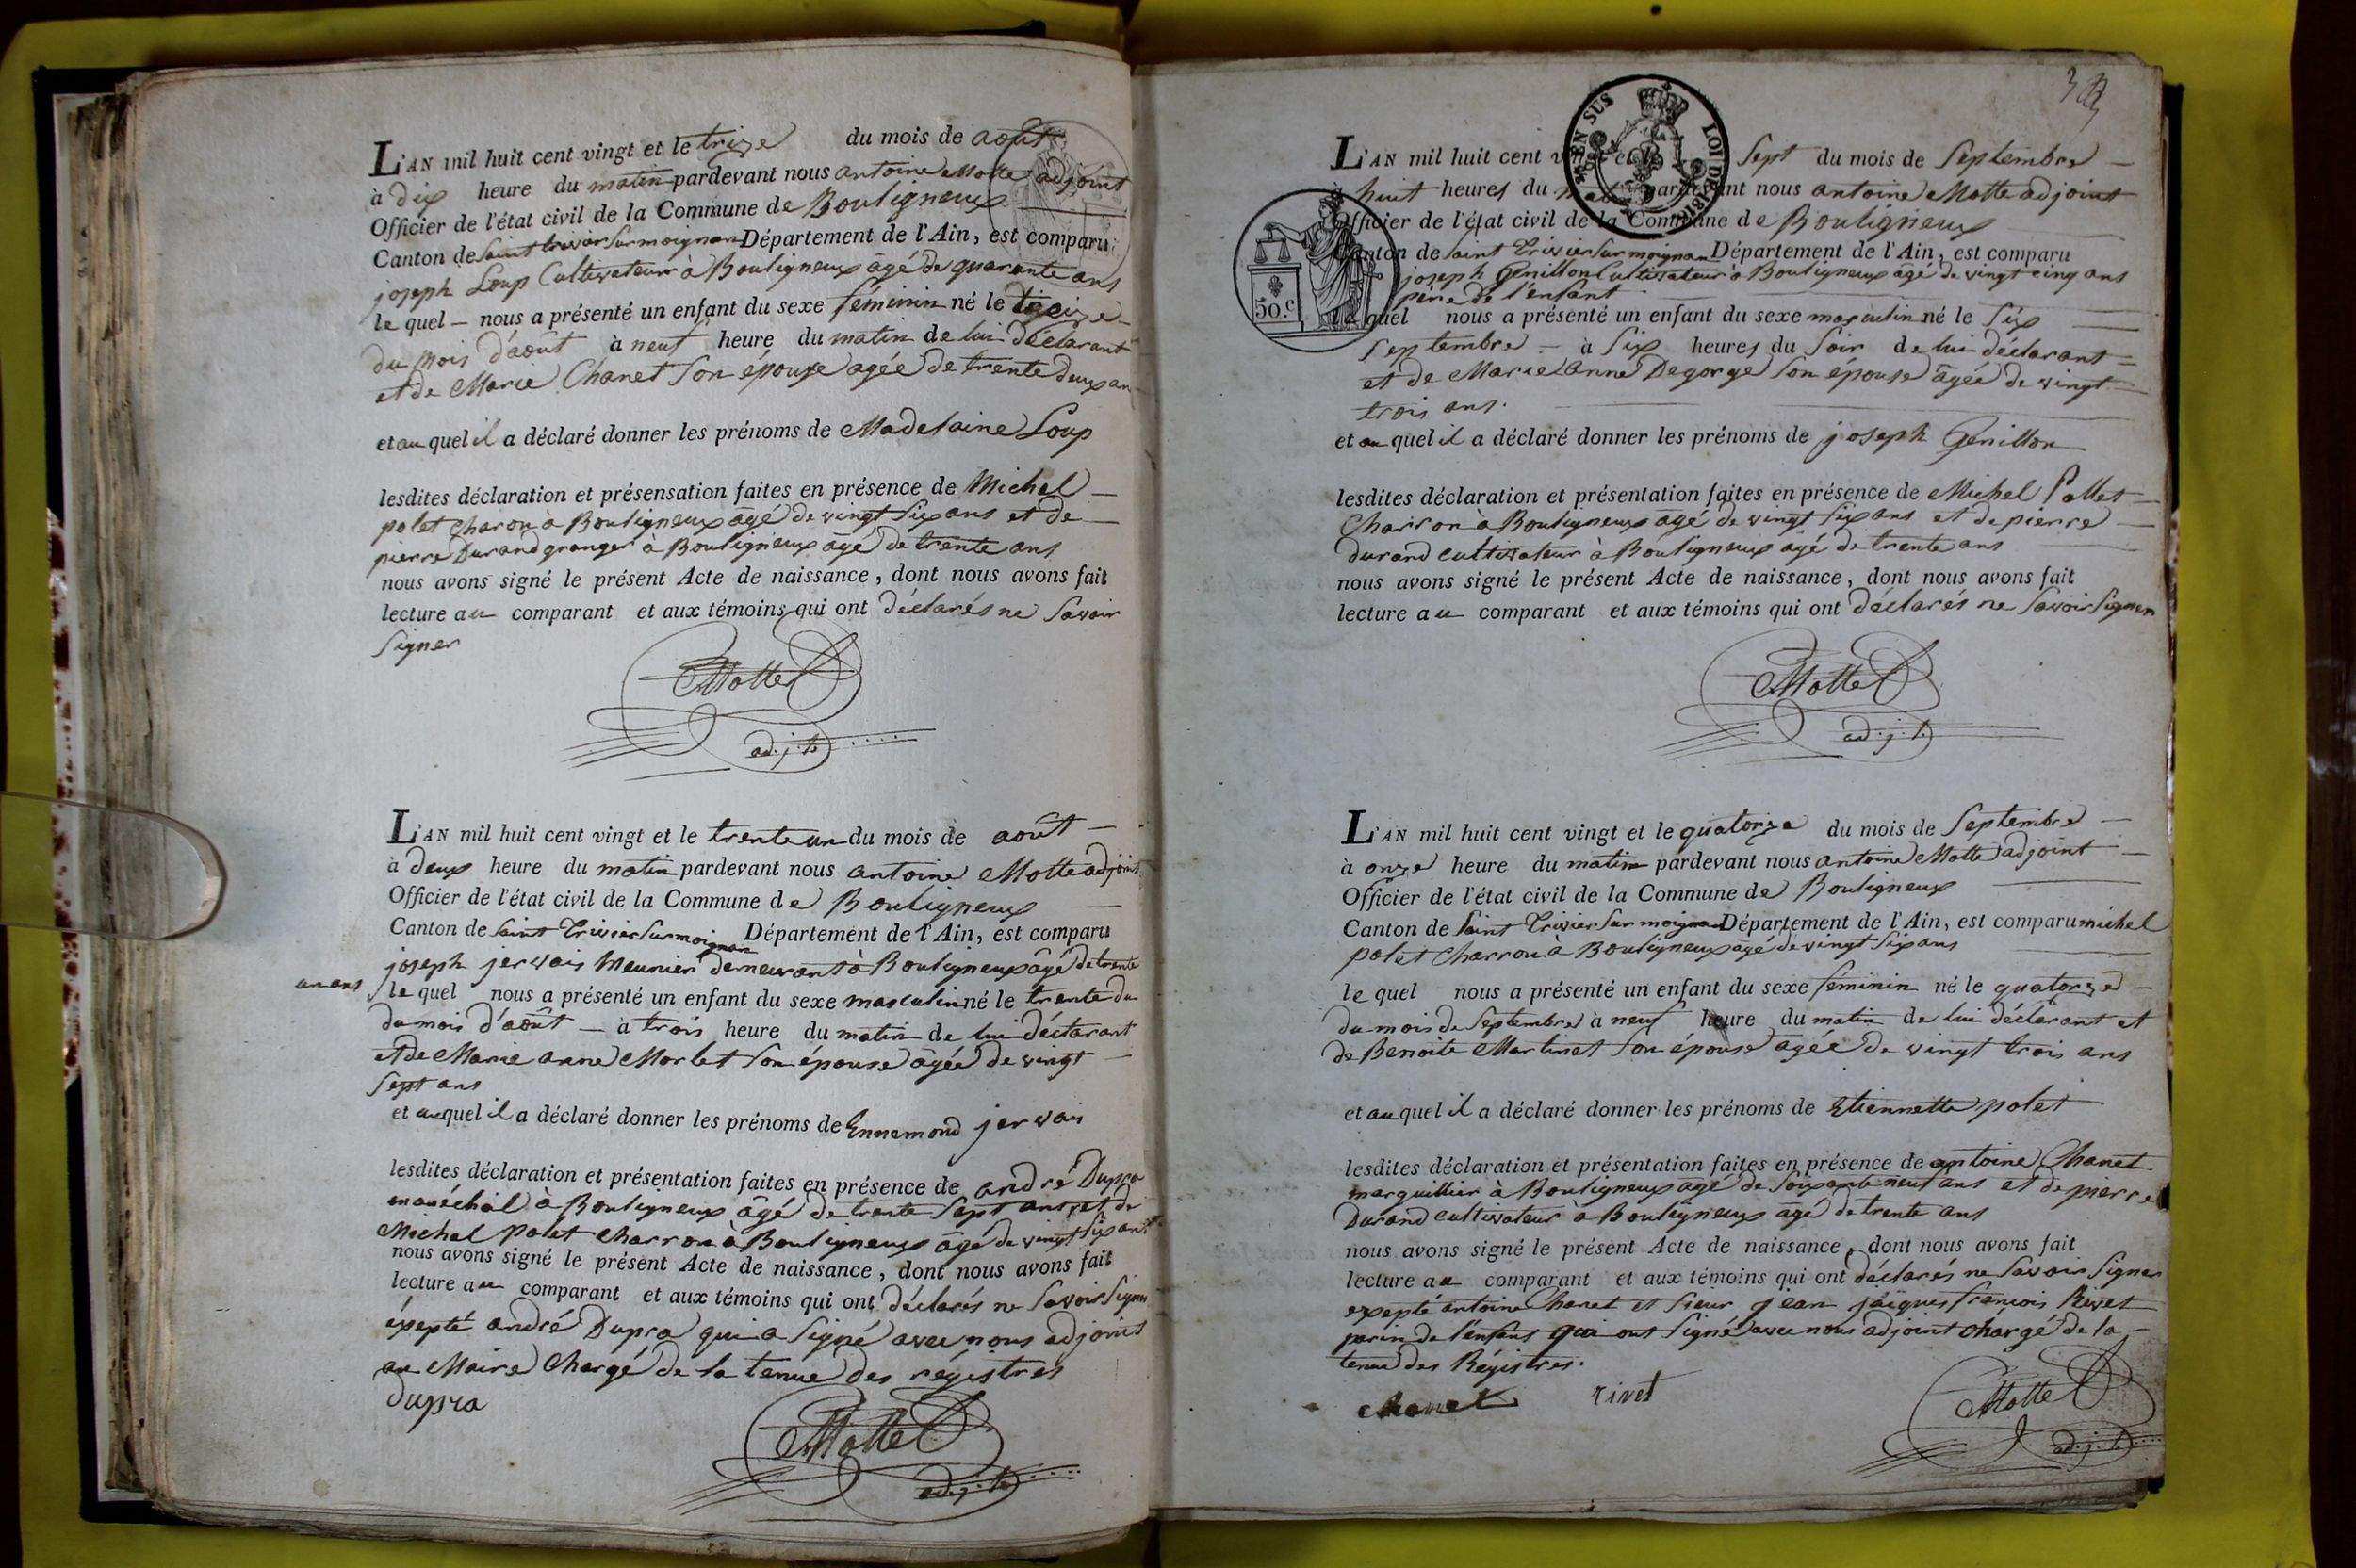 L'AN mil huit cent vingt et le treize du mois de août
à dix heure du matin pardevant nous antoine Motte adjoint
Officier de l'état civil de la Commune de Bouligneux
Canton de Saint trivier Sur moignan Département de l'Ain, est comparu
joseph Loup Cultivateur à Bouligneux âgé de quarante ans
le quel — nous a présenté un enfant du sexe féminin né le treize
du mois d'août à neuf heure du matin de lui déclarant
et de Marie Chanet Son épouse agée de trente deux an
et au quel il a déclaré donner les prénoms de Madelaine Loup
lesdites déclaration et présensation faites en présence de Michel
polet charon à Bouligneux âgé de vingt six ans et de
pierre Durand granger à Bouligneux âgé de trente ans
nous avons signé le présent Acte de naissance, dont nous avons fait
lecture au comparant et aux témoins qui ont déclarés ne Savoir
Signer
Motte
ad.j.t
L'AN mil huit cent vingt et le trente un du mois de août
à deux heure du matin pardevant nous antoine Motte adjoint
Officier de l'état civil de la Commune de Bouligneux
Canton de Saint Trivier Sur moignan Département de l'Ain, est comparu
joseph jervais Meunier demeurant à Bouligneux âgé de trente
un ans
le quel nous a présenté un enfant du sexe masculin né le trente du
du mois d'août — à trois heure du matin de lui déclarant
et de Marie anne Morlet Son épouse âgée de vingt
Sept ans
et auquel il a déclaré donner les prénoms de Ennemond jervais
lesdites déclaration et présentation faites en présence de andré Dupra
maréchal à Bouligneux âgé de trente Sept ans et de
Michel Polet charron à Bouligneux âgé de vingt six ans
nous avons signé le présent Acte de naissance, dont nous avons fait
lecture au comparant et aux témoins qui ont déclarés ne Savoir Signer
éxepté andré Dupra qui a Signé avec nous adjoint
au Maire Chargé de la tenue des régistres
Dupra
Motte
ad.j.t
EN SUS LOI DE
50.C
L'AN mil huit cent vingt et le Sept du mois de Septembre
à huit heures du matin pardevant nous antoine Motte adjoint
Officier de l'état civil de la Commune de Bouligneux
Canton de Saint Trivier Sur moignan Département de l'Ain, est comparu
joseph Genillon Cultivateur à Bouligneux âgé de vingt cinq ans
père de l'enfant
le quel nous a présenté un enfant du sexe masculin né le Six
Septembre — à Six heures du Soir de lui déclarant
et de Marie Anne Degorge Son épouse âgée de vingt
trois ans.
et au quel il a déclaré donner les prénoms de joseph Genillon
lesdites déclaration et présentation faites en présence de Michel Pollet
Charron à Bouligneux âgé de vingt six ans et de pierre
durand cultivateur à Bouligneux agé de trente ans
nous avons signé le présent Acte de naissance, dont nous avons fait
lecture au comparant et aux témoins qui ont déclarés ne Savoir Signer
Motte
ad.j.t
L'AN mil huit cent vingt et le quatorze du mois de Septembre
à onze heure du matin pardevant nous antoine Motte adjoint
Officier de l'état civil de la Commune de Bouligneux
Canton de Saint Trivier Sur moignan Département de l'Ain, est comparu michel
polet charron à Bouligneux âgé de vingt Six ans
le quel nous a présenté un enfant du sexe féminin né le quatorze
du mois de Septembre à neuf heure du matin de lui déclarant et
de Benoite Martinet Son épouse agée de vingt trois ans
et au quel il a déclaré donner les prénoms de Etiennette polet
lesdites déclaration et présentation faites en présence de antoine Chanet
marguillier à Bouligneux agé de Soixante neuf ans et de pierre
Durand cultivateur à Bouligneux agé de trente ans
nous avons signé le présent Acte de naissance, dont nous avons fait
lecture au comparant et aux témoins qui ont déclarés ne Savoir Signer
exepté antoine Chanet et Sieur jean jaques francois Rivet
parin de l'enfant qui ont Signé avec nous adjoint chargé de la
tenue des Régistres.
chanet rivet
Motte
ad.j.t